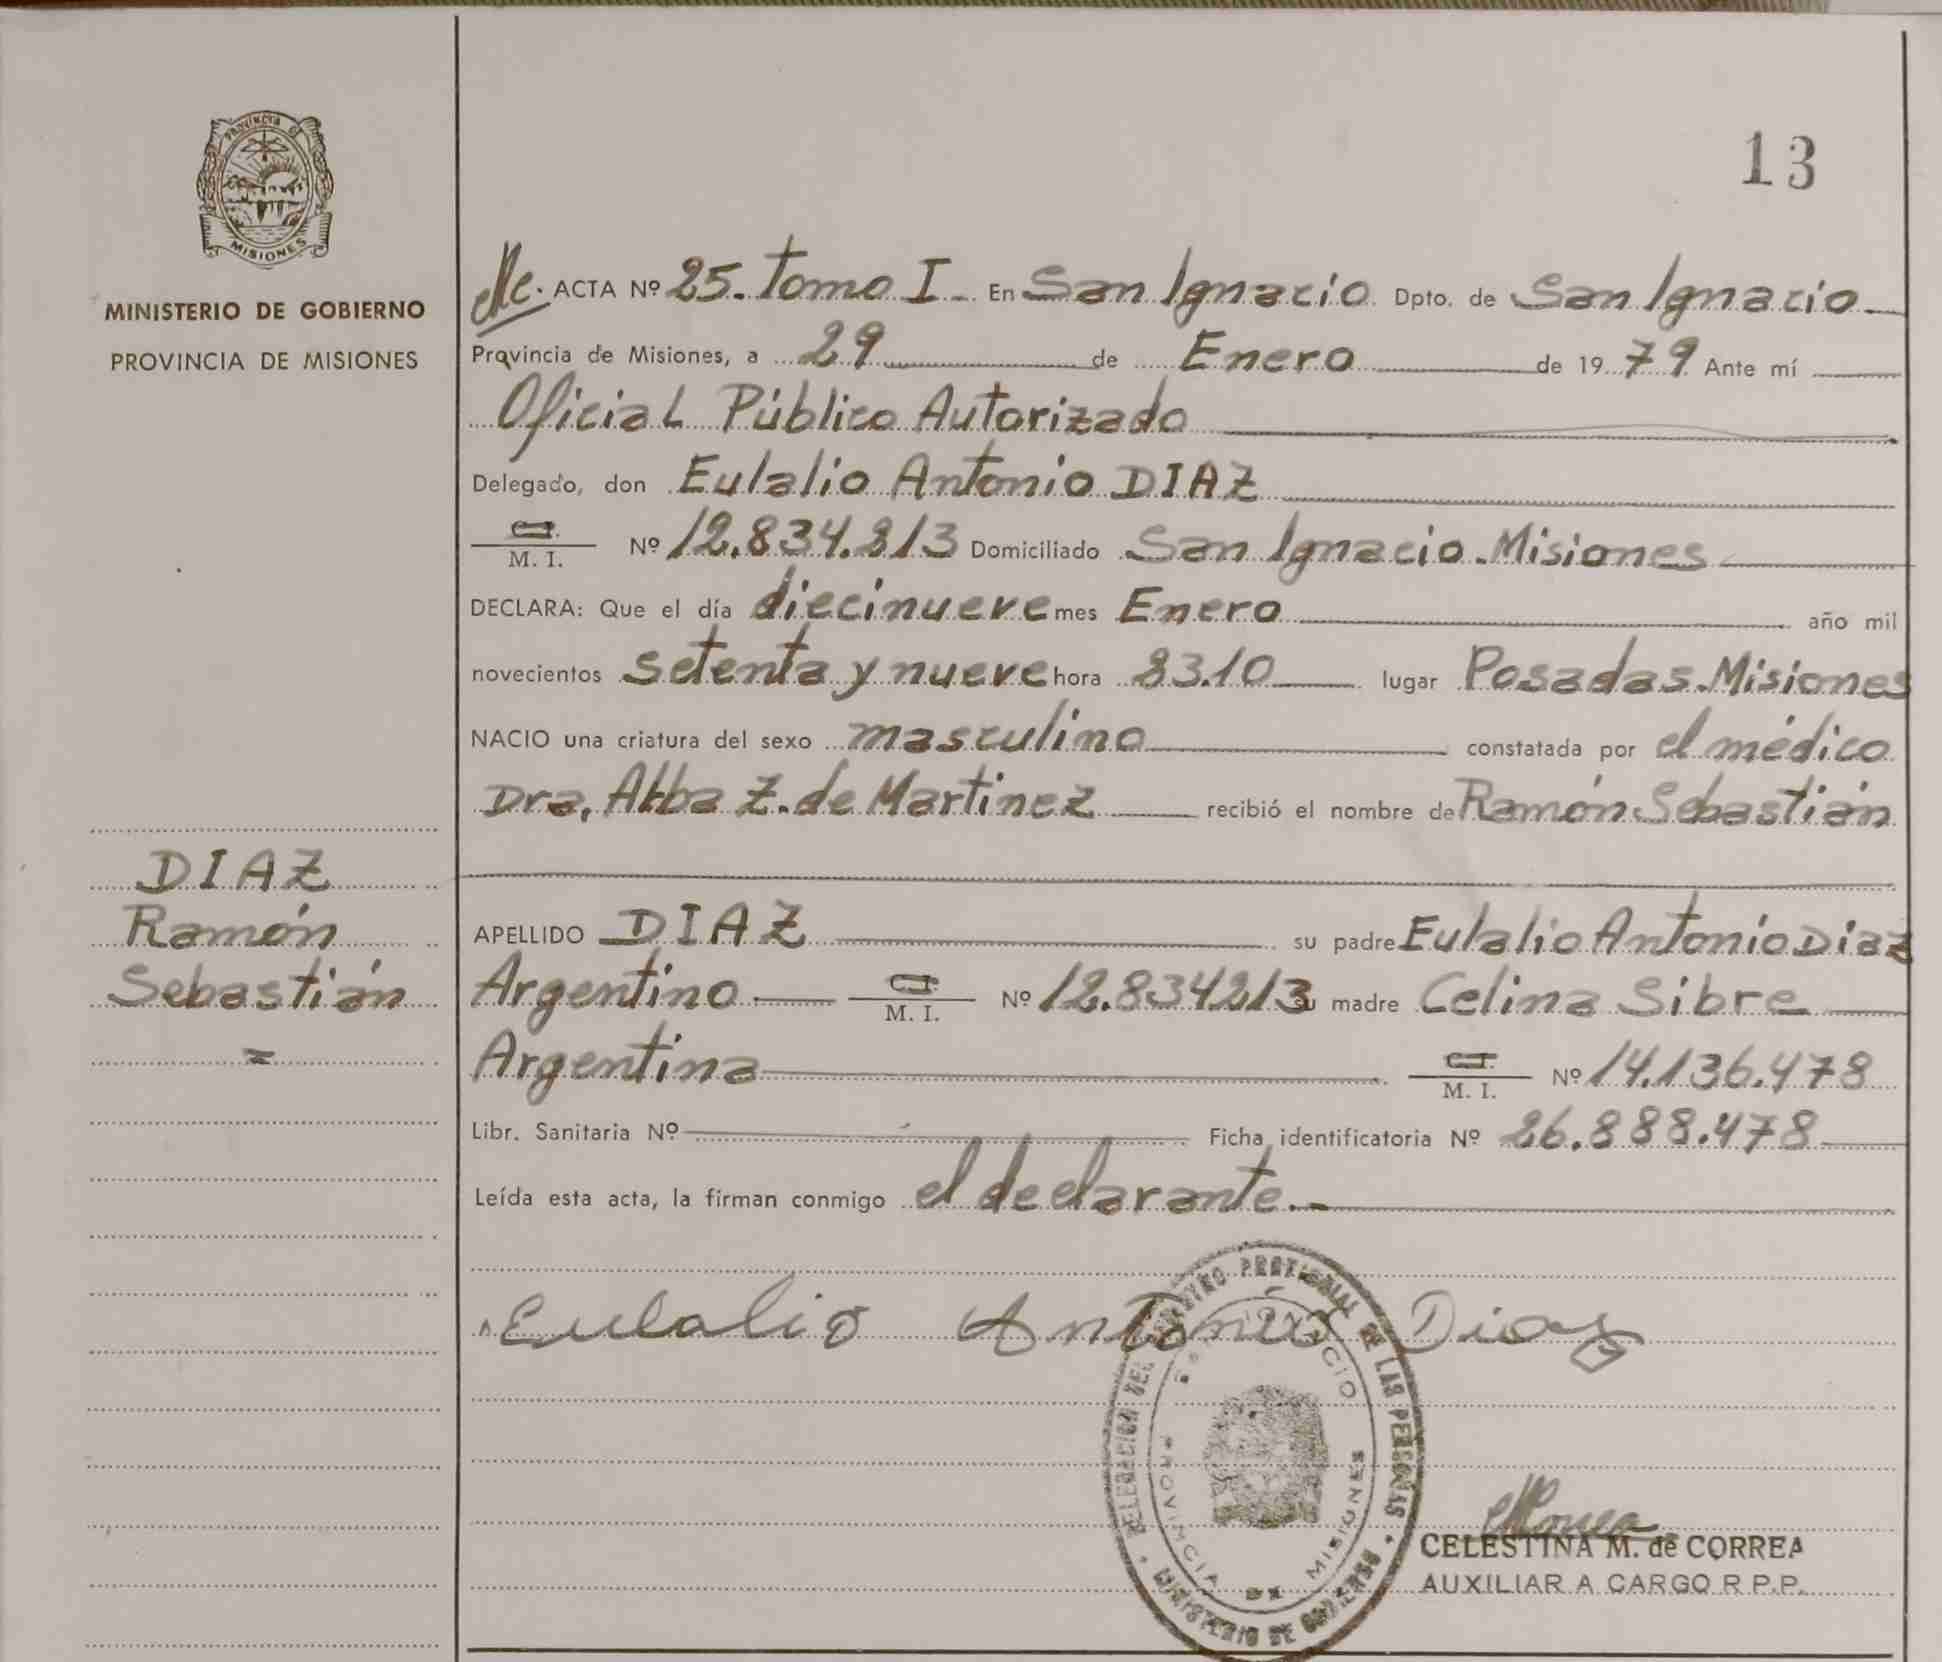 PROVINCIA DE
MISIONES
MINISTERIO DE GOBIERNO
PROVINCIA DE MISIONES
DIAZ
Ramón
Sebastián
=
13
ACTA Nº 25. Tomo I - En San Ignacio Dpto. de San Ignacio
Provincia de Misiones, a 29 de Enero de 1979 Ante mí
Oficial Público Autorizado
Delegado, don Eulalio Antonio DIAZ
C.I.
M. I. Nº 12.834.213 Domiciliado San Ignacio - Misiones
DECLARA: Que el día diecinueve mes Enero año mil
novecientos setenta y nueve hora 23.10 lugar Posadas. Misiones
NACIO una criatura del sexo masculino constatada por el médico
Dra. Alba Z. de Martinez recibió el nombre de Ramón Sebastián
APELLIDO DIAZ su padre Eulalio Antonio Diaz
Argentino C.I. M. I. Nº 12.834213 su madre Celina Sibre
Argentina C.I. M. I. Nº 14.136.478
Libr. Sanitaria Nº Ficha identificatoria Nº 26.888.478
Leída esta acta, la firman conmigo el declarante.-
Eulalio Antonio Diaz
DELEGACION DEL REGISTRO PROVINCIAL DE LAS PERSONAS
SAN IGNACIO
PROVINCIA DE MISIONES
MINISTERIO DE GOBIERNO
CELESTINA M. de CORREA
AUXILIAR A CARGO R.P.P.